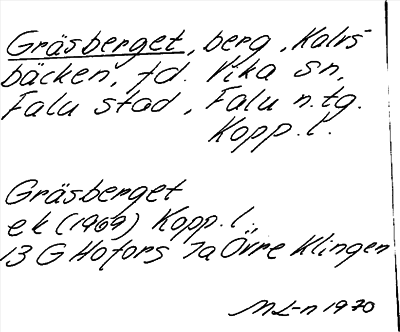 Gräsberget, berg, Kalvs-
bäcken, fd. Vika sn,
Falu stad, Falu n.tg.
Kopp. l.
Gräsberget
ek (1969) Kopp. l.
13 G Hofors 7a Övre Klingen
ML-n 1970